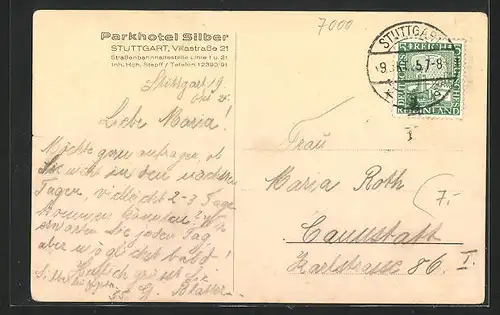 Parkhotel Silber
STUTTGART, Villastraße 21
Straßenbahnhaltestelle Linie 1 u. 21
Inh. Hch. Stepff / Telefon 12390/91
7000
STUTTGART
5 DEUTSCHES REICH 5
RHEINLAND
7-8
Stuttgart 19
Liebe Maria!
Möchte gern anfragen, ob
Sie nicht in den nächsten
Tagen, vielleicht 2-3 Tage
kommen könnten? Wir
erwarten Sie jeden Tag
aber möglichst bald!
Herzlich grüsst Sie
Frau
Maria Roth
Cannstatt
Karlstrasse 86 I.
I
7.-